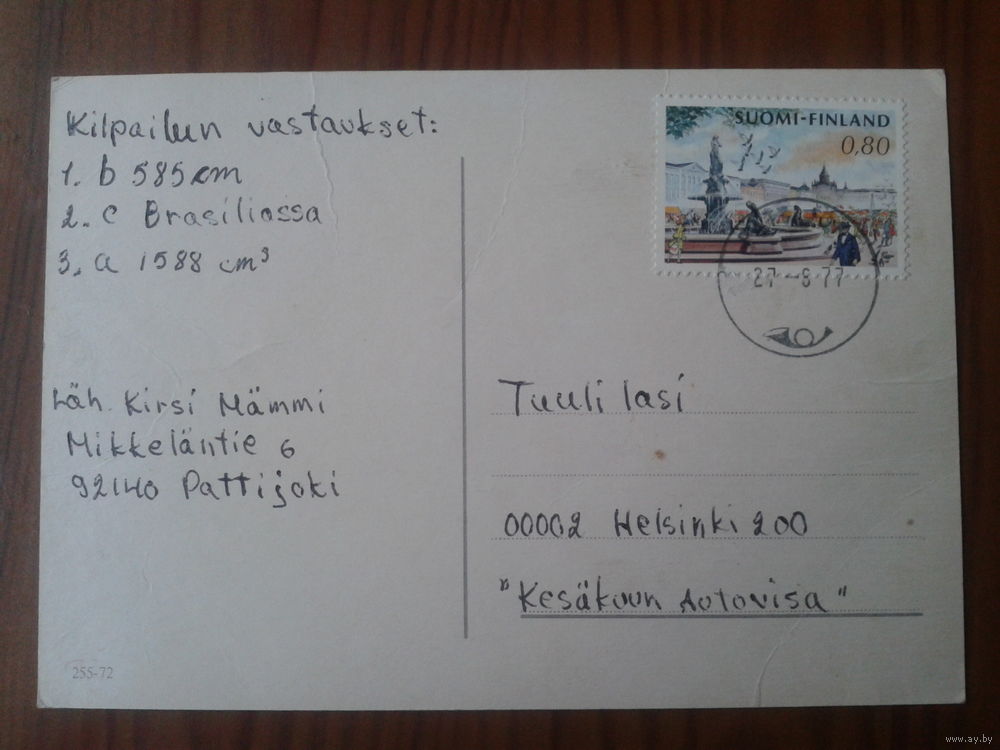 Kilpailun vastaukset:
1. b 585 cm
2. c Brasiliassa
3. a 1588 cm³
Läh. Kirsi Mämmi
Mikkeläntie 6
92140 Pattijoki
255-72
SUOMI-FINLAND
0,80
27 -6 77
Tuulilasi
00002 Helsinki 200
"Kesäkuun Autovisa"
www.ay.by